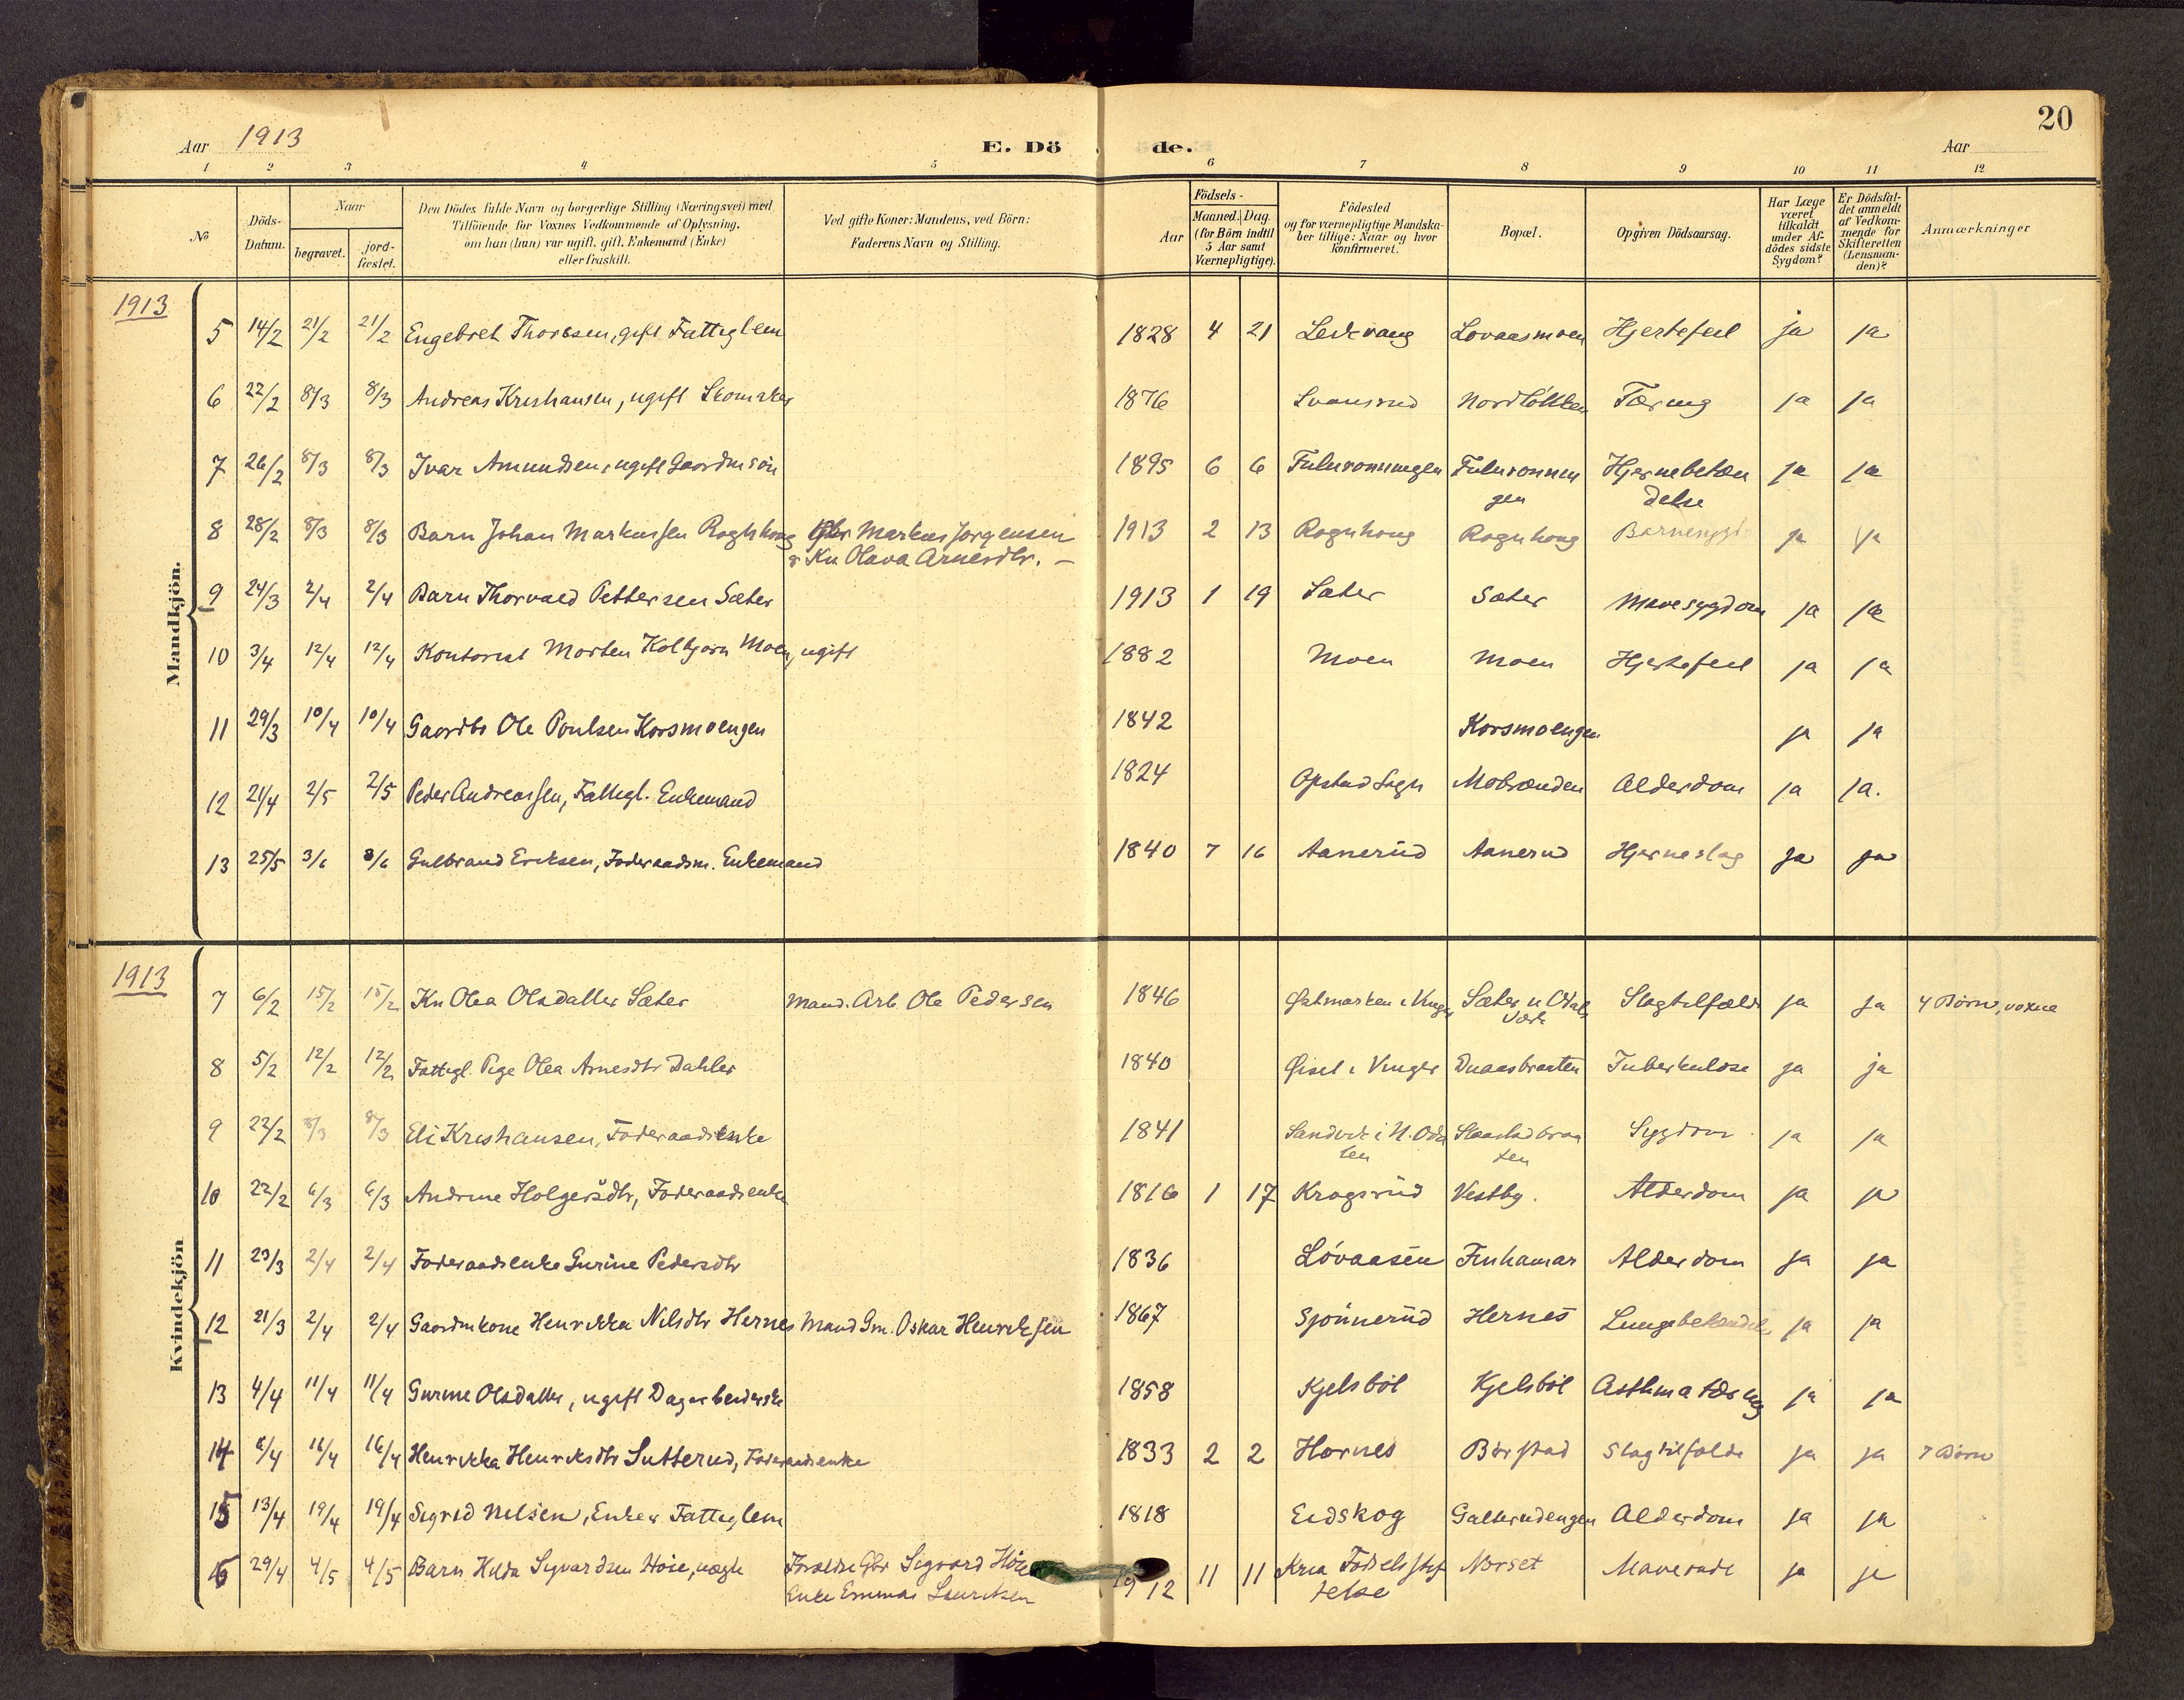 20
Aar 1913 E. Dö de. Aar
1 2 3 4 5 6 7 8 9 10 11 12
No
Döds-Datum.
Naar
begravet.
jord-fæstet.
Den Dödes fulde Navn og borgerlige Stilling (Næringsvei) med
Tilföiende for Voxnes Vedkommende af Oplysning,
om han (hun) var ugift, gift, Enkemand (Enke)
eller fraskilt.
Ved gifte Koner: Mandens, ved Börn:
Faderens Navn og Stilling.
Aar
Födsels-
Maaned. Dag.
(for Börn indtil
5 Aar samt
Værnepligtige).
Födested
og for værnepligtige Mandska-
ber tillige: Naar og hvor
konfirmeret.
Bopæl.
Opgiven Dödsaarsag.
Har Læge
været
tilkaldt
under Af-
dödes sidste
Sygdom?
Er Dödsfal-
det anmeldt
af Vedkom-
mende for
Skifteretten
(Lensman-
den)?
Anmærkninger
1913
Mandkjön.
5 14/2 21/2 21/2 Engebret Thoresen, gift Fattiglem 1828 4 21 Lovaasmoen Hjertefeil ja ja
6 22/2 8/3 8/3 Andreas Kristiansen, ugift Skomaker 1876 Svansrud Nordløkken Tæring ja ja
7 26/2 8/3 8/3 Ivar Amundsen, ugift Gaardmsøn 1895 6 6 Hjernebetæn ja ja
gen delse
8 28/2 8/3 8/3 Barn Johan Markussen Rognhaug Gbr Markus Jørgensen 1913 2 13 Rognhaug Rognhaug Barnesygd ja ja
& Kn Olava Arnesdtr. –
9 24/3 2/4 2/4 Barn Thorvald Pettersen Sæter 1913 1 19 Sæter Sæter Mavesygdom ja ja
10 3/4 12/4 12/4 Kontorist Morten Kolbjørn Moen, ugift 1882 Moen Moen Hjertefeil ja ja
11 29/3 10/4 10/4 Gaardbr Ole Poulsen Korsmoengen 1842 Korsmoengen ja ja
12 21/4 2/5 2/5 Peder Andreassen, Fattigl. Enkemand 1824 Opstad Sogn Mobrænden Alderdom ja ja.
13 25/5 3/6 3/6 Gulbrand Eriksen, Foderaadsm. Enkemand 1840 7 16 Aanerud Aanerud Hjerneslag ja ja
1913
Kvindekjön
7 6/2 15/2 15/2 Kn Olea Olsdatter Sæter Mand. Arb. Ole Pedersen 1846 Slagtilfælde ja ja 4 Børn, voxne
8 5/2 12/2 12/2 Fattigl. Pige Olea Arnesdtr Dahler 1840 Øisel i Vinger Tuberkulose ja ja
9 22/2 8/3 8/3 Eli Kristiansen, Foderaadsenke 1841 Sandvik i N. Oda Slaastadbraa Sygdom ja ja
len ten
10 22/2 6/3 6/3 Andrine Holgersdtr, Foderaadsenke 1816 1 17 Krogsrud Vestby. Alderdom ja ja
11 23/3 2/4 2/4 Foderaadsenke Gurine Pedersdtr 1836 Løvaasen Finhamar Alderdom ja ja
12 21/3 2/4 2/4 Gaardmkone Henrikka Nilsdtr Hernes Mand Gm. Oskar Henriksen 1867 Sjønnerud Hernes ja ja
13 4/4 11/4 11/4 Gurine Olsdatter, ugift Dagarbeiderske 1858 Kjelsbøl Kjelsbøl Asthma tæring ja ja
14 8/4 16/4 16/4 Henrikka Henriksdtr Sutterud, Foderaadsenke 1833 2 2 Hornes Børstad Slagtilfælde ja ja 7 Børn
15 13/4 19/4 19/4 Sigrid Nilsen, Enke, Fattiglem 1818 Eidskog Galterudengen Alderdom ja ja
16 29/4 4/5 4/5 Barn Hilda Sigvardsen Hoie, uægte Forældre Gbr Sigvard Høie 1912 11 11 Kria Fødselsstif Norset ja ja
Enke Emma Lauritsen telse